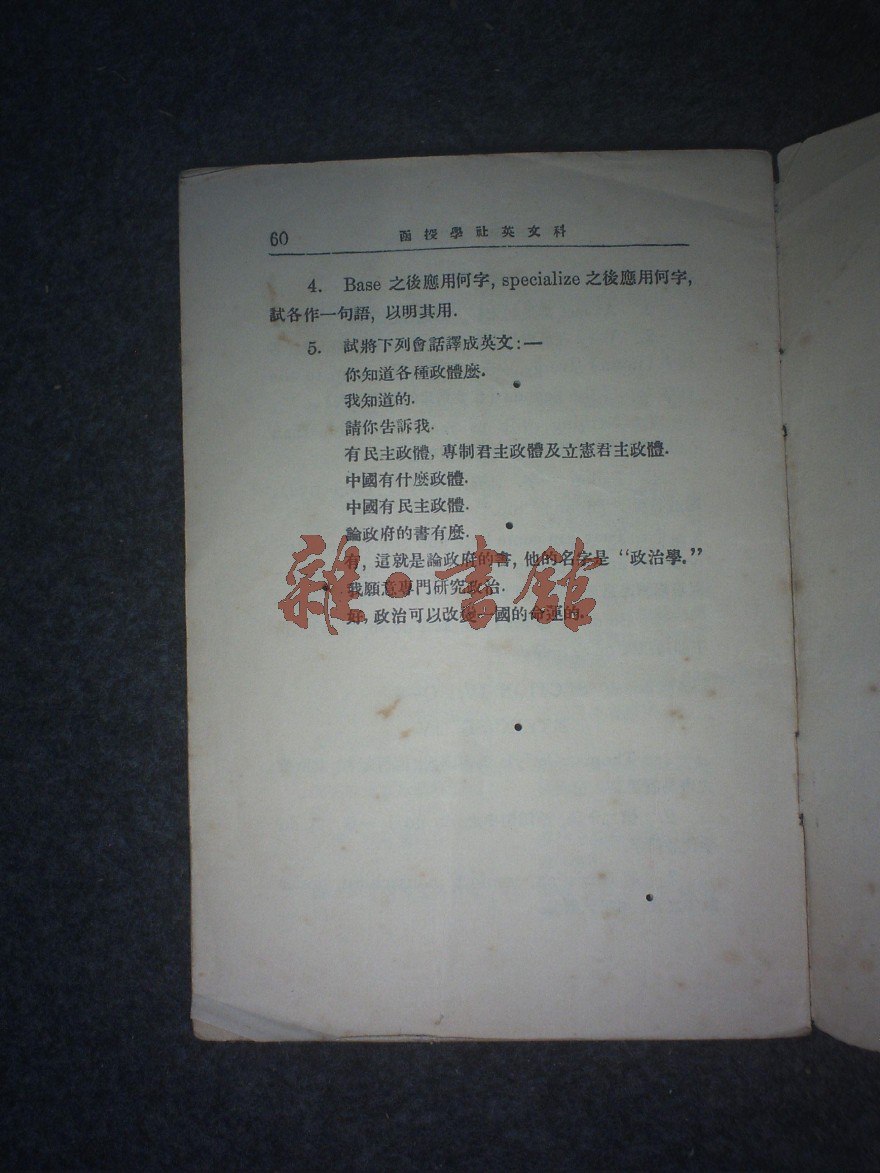 60
函授學社英文科
4. Base 之後應用何字, specialize 之後應用何字,
試各作一句語, 以明其用.
5. 試將下列會話譯成英文:—
你知道各種政體麽.
我知道的.
請你告訴我.
有民主政體, 專制君主政體及立憲君主政體.
中國有什麽政體.
中國有民主政體.
論政府的書有麽.
有, 這就是論政府的書, 他的名字是 “政治學.”
我願意專門研究政治.
好, 政治可以改變一國的命運的.
雜·書館